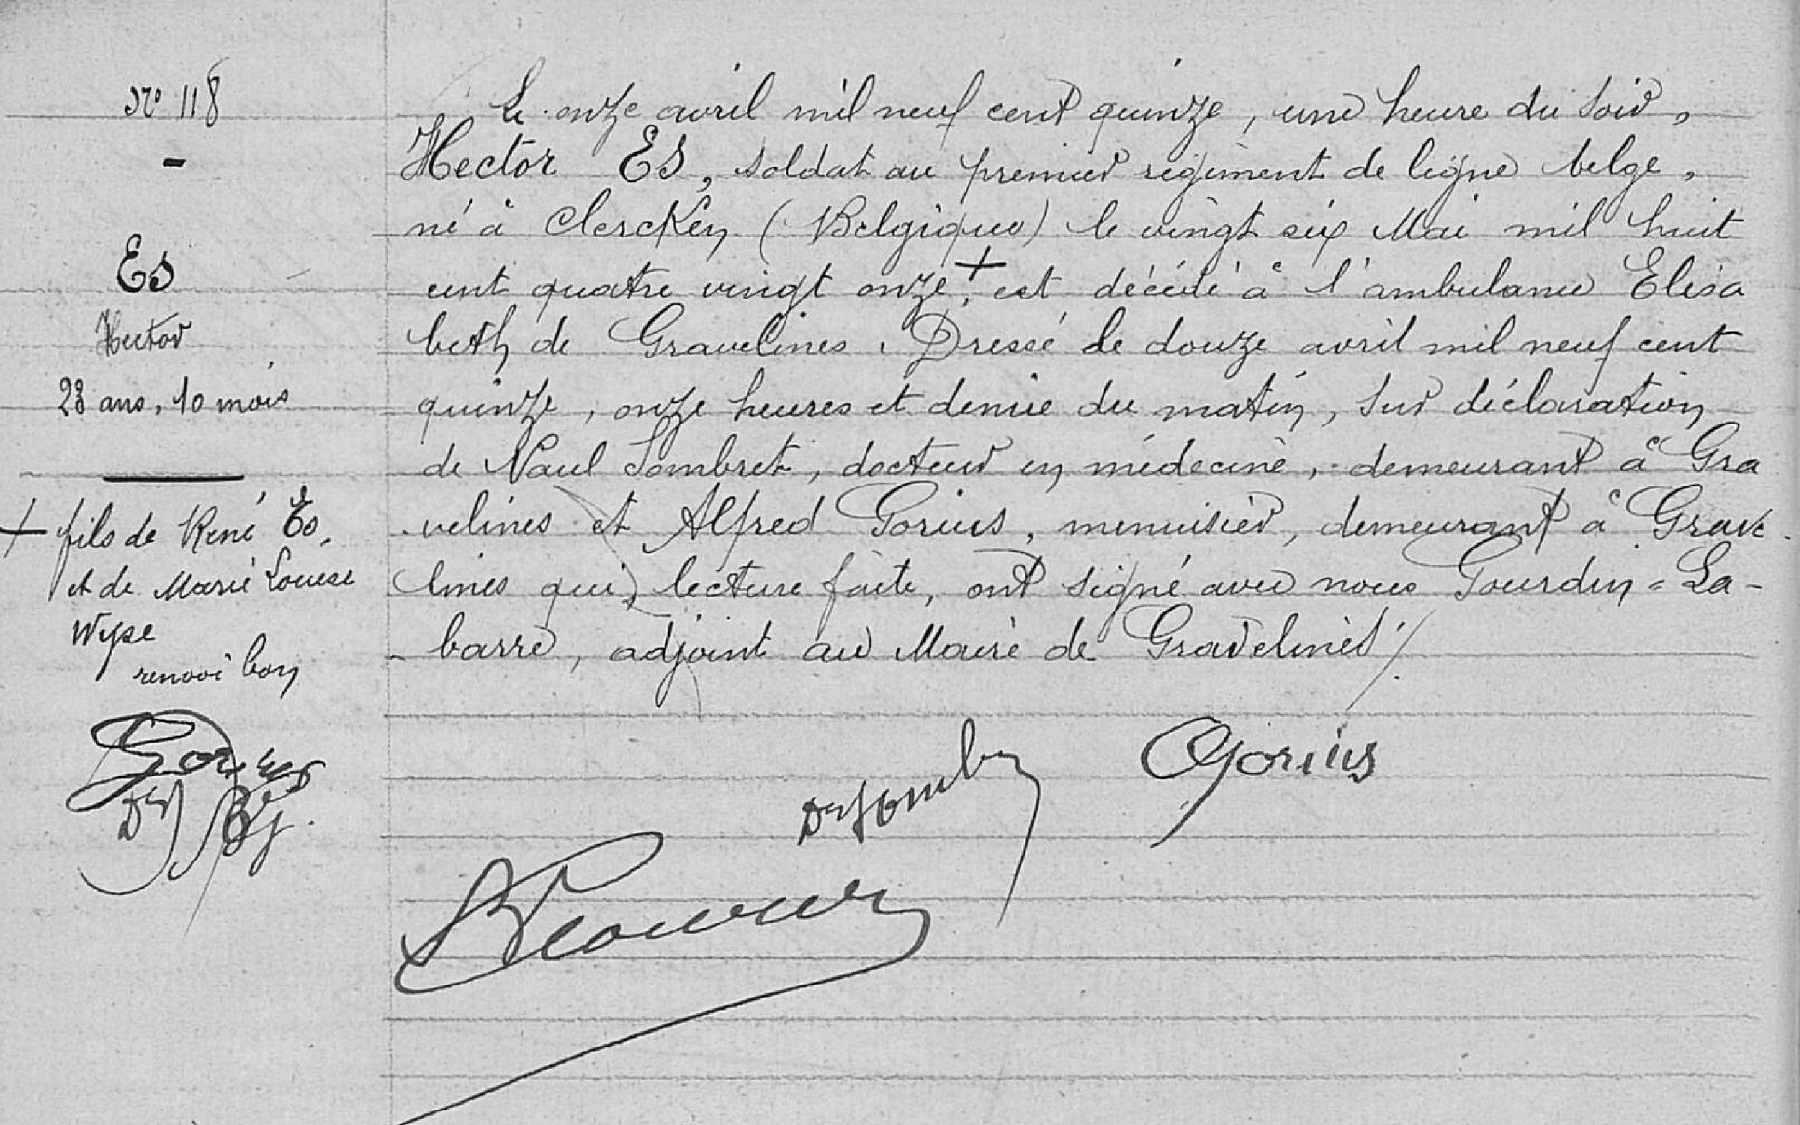 N° 118
-
Es
Hector
23 ans, 10 mois
+ fils de René Es,
et de Marie Louise
Wyse
renvoi bon
Gorius
Le onze avril mil neuf cent quinze, une heure du soir,
Hector ES, soldat au premier régiment de ligne belge,
né à Clercken (Belgique) le vingt six Mai mil huit
cent quatre vingt onze,+ est décédé à l'ambulance Elisa
beth de Gravelines. Dressé le douze avril mil neuf cent
quinze, onze heures et demie du matin, sur déclaration
de Paul Sombret, docteur en médecine, demeurant à Gra
velines et Alfred Gorius, menuisier, demeurant à Grave
lines qui, lecture faite, ont signé avec nous Gourdin-La-
barre, adjoint au Maire de Gravelines ./.
Gorius